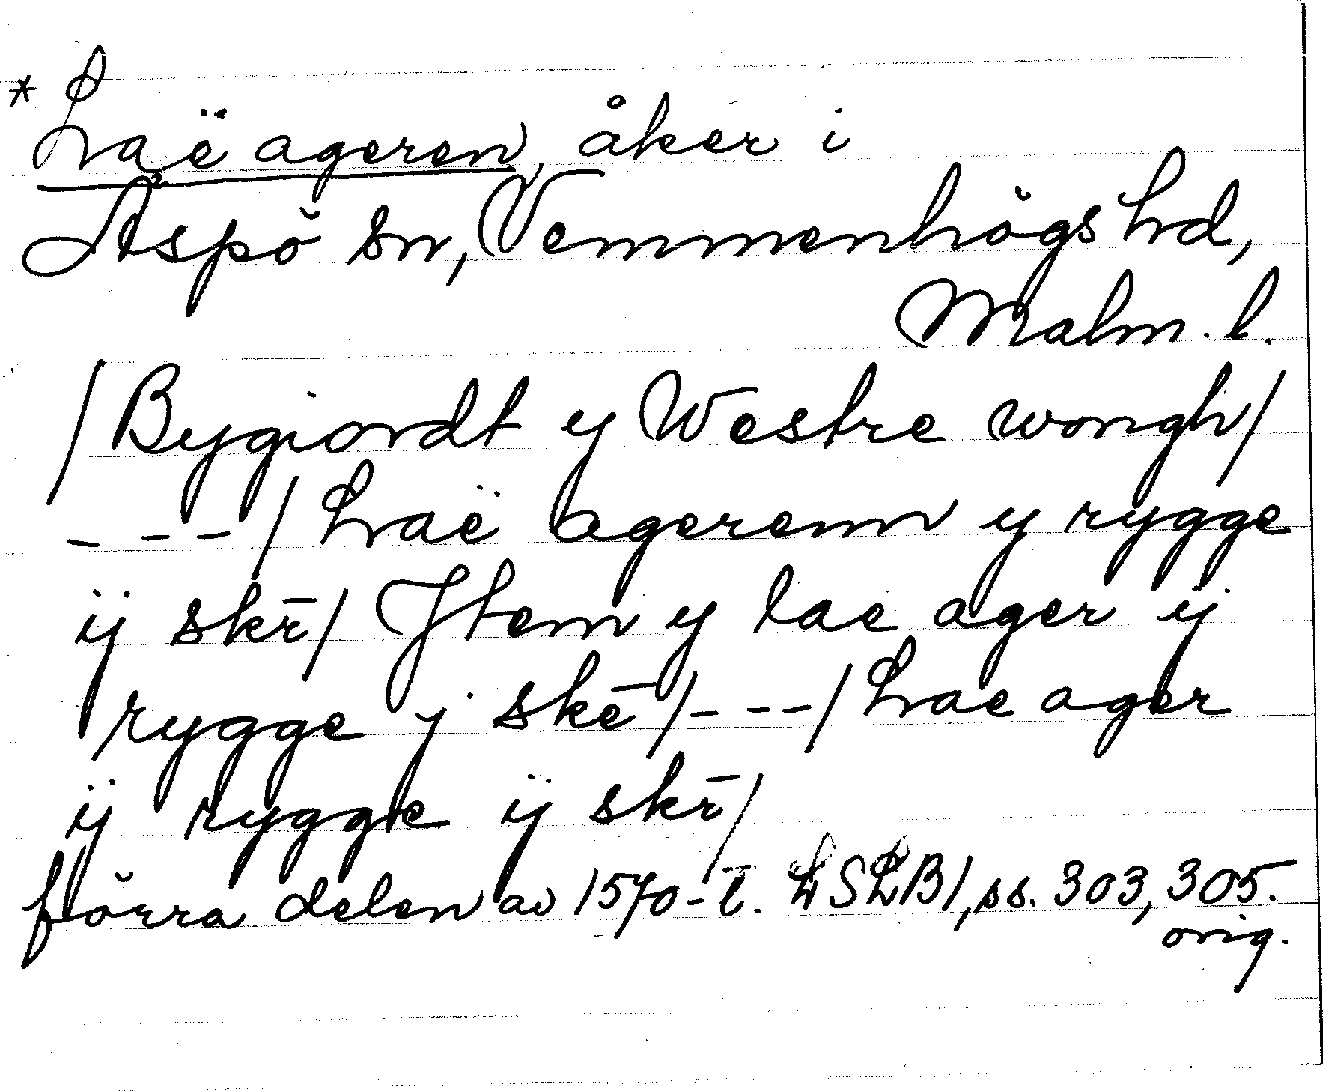 * Laë ageren, åker i
Äspö sn, Vemmenhögs hd,
Malm. l.
/Bygiordt y Westre wongh/
- - -/ Laë agerenn y rygge
ÿ skr̄/ Jtem y lae ager ÿ
rygge j skē /- - -/ Lae ager
ÿ rygge ÿ skr̄/
förra delen av 1570-t. LSLB1, ss. 303, 305.
orig.